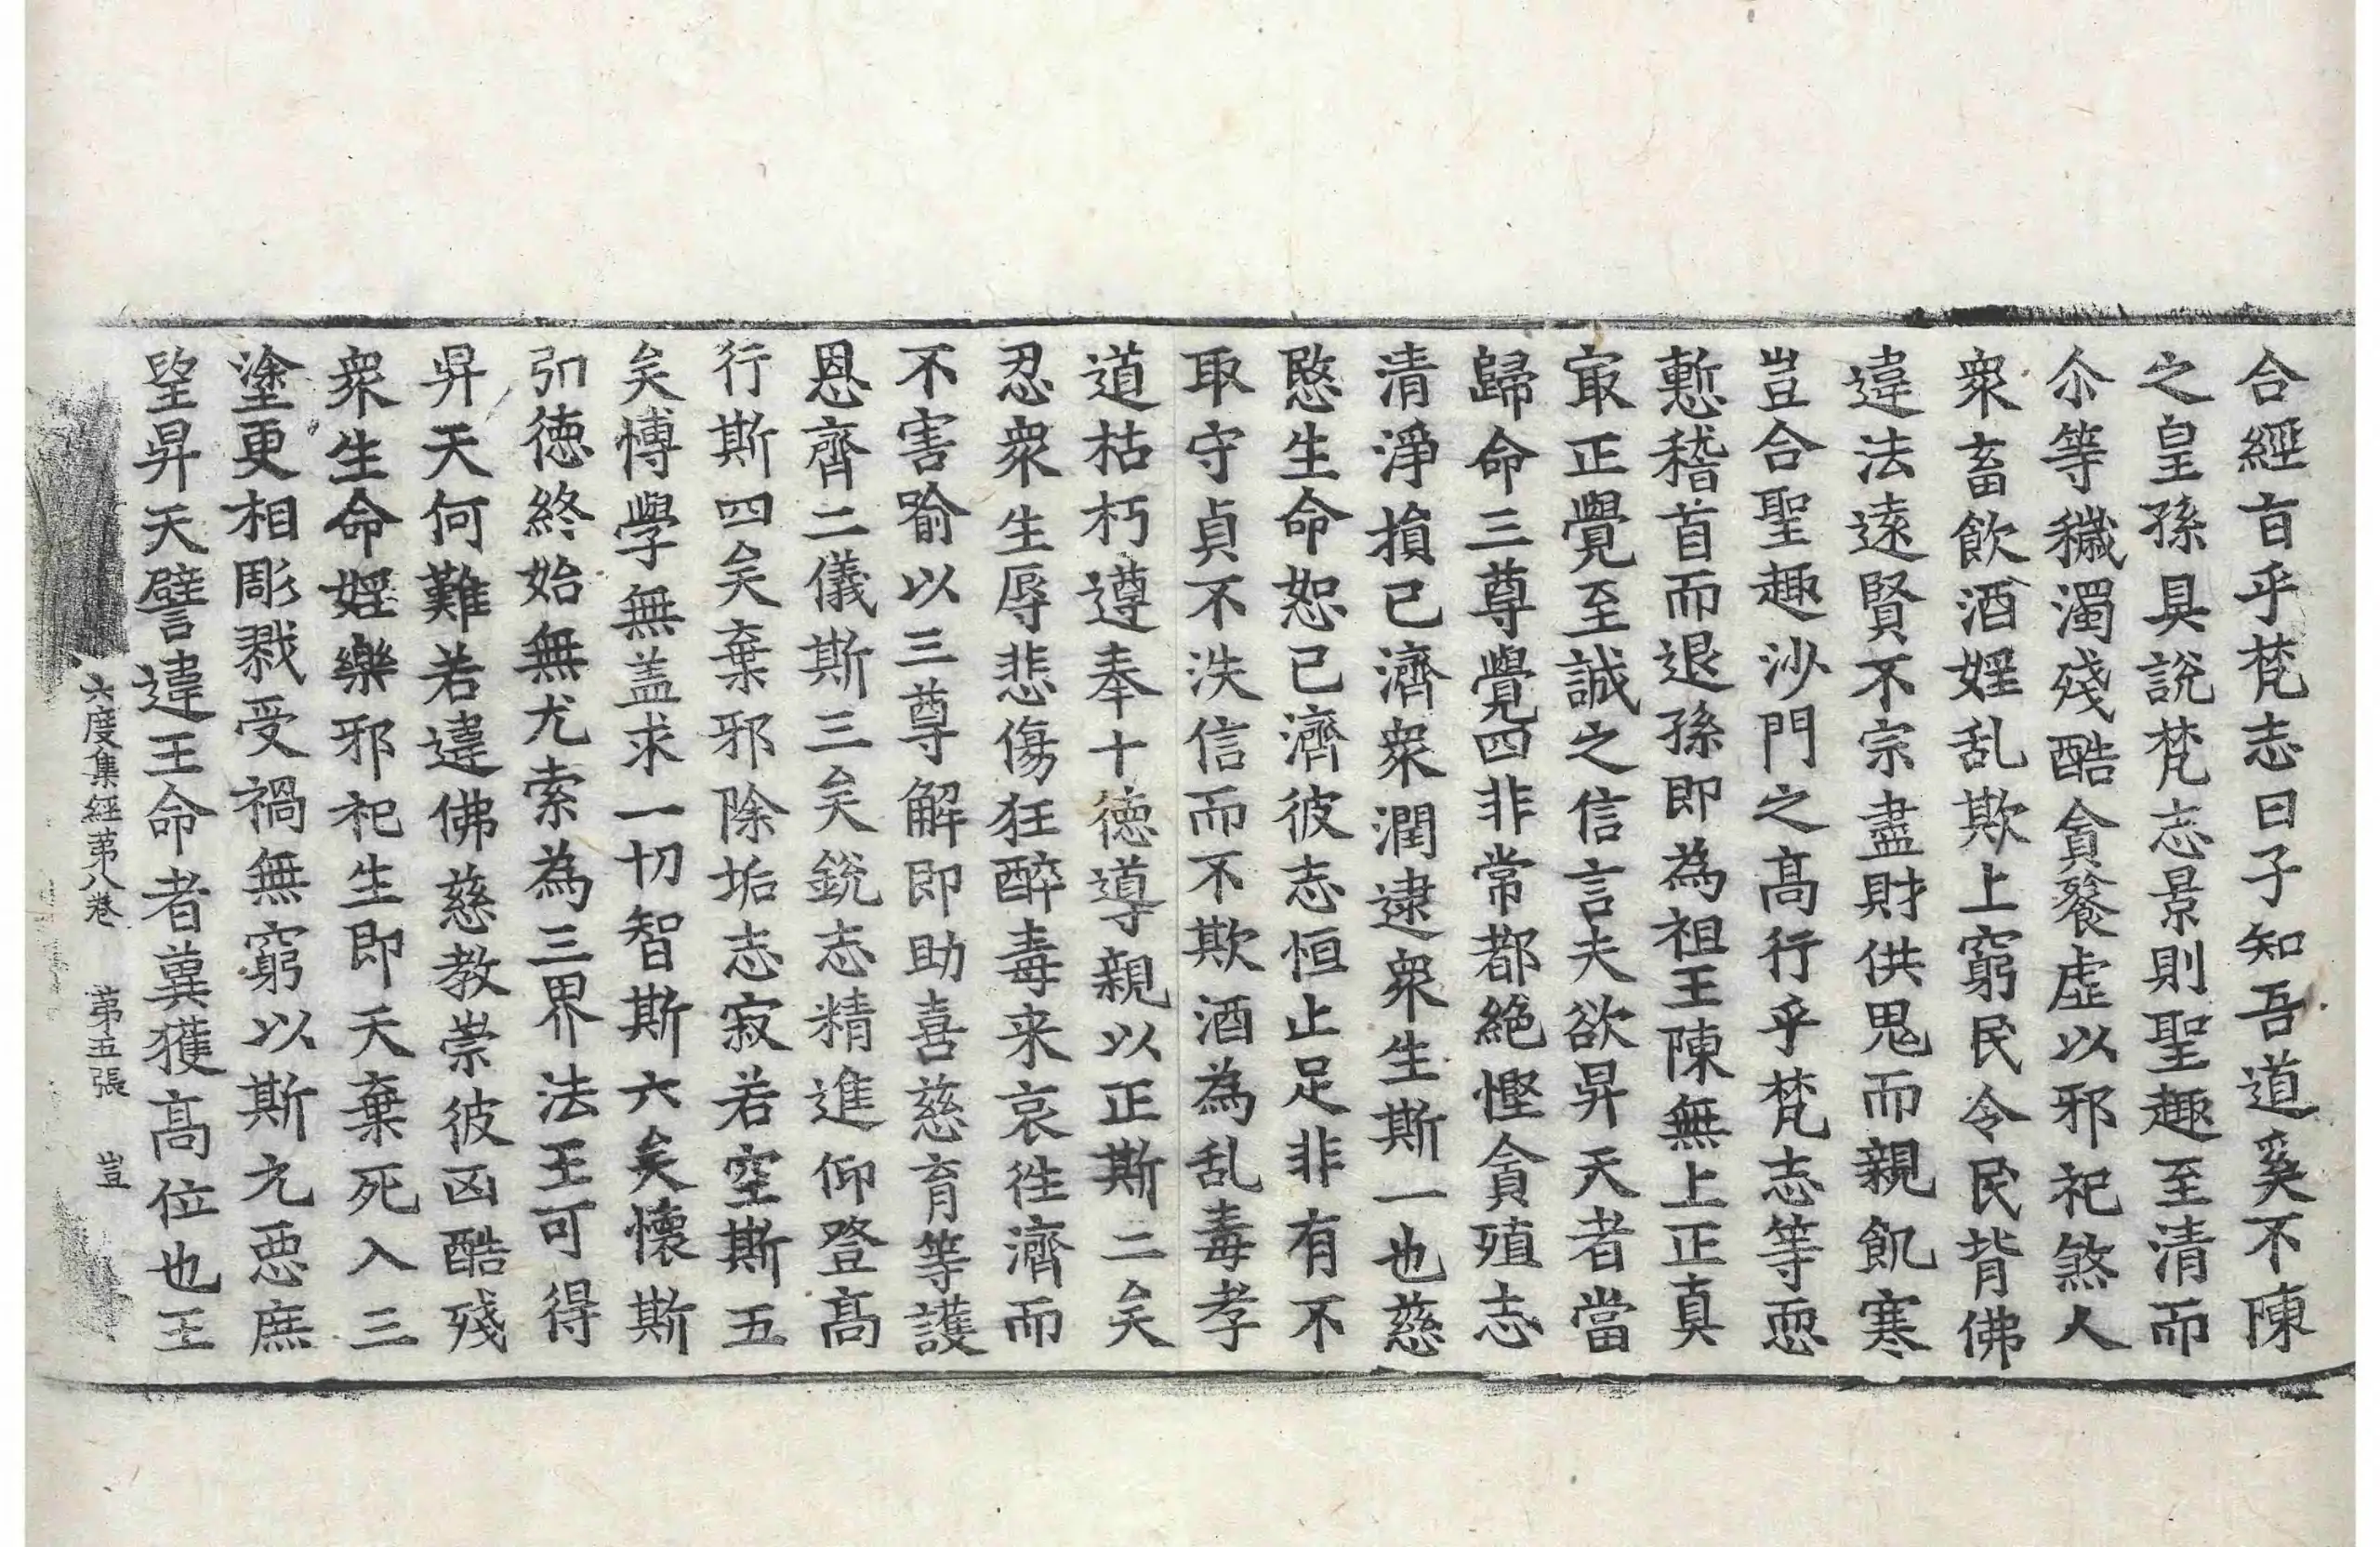 合經旨乎梵志曰子知吾道奚不陳
之皇孫具說梵志景則聖趣至清而
尒等穢濁殘酷貪餮虛以邪祀煞人
衆畜飲酒婬乱欺上窮民令民背佛
違法遠賢不宗盡財供鬼而親飢寒
豈合聖趣沙門之高行乎梵志等恧
慙稽首而退孫即為祖王陳無上正真
㝡正覺至誠之信言夫欲昇天者當
歸命三尊覺四非常都絕慳貪殖志
清淨損已濟衆潤逮衆生斯一也慈
愍生命恕已濟彼志恒止足非有不
取守貞不泆信而不欺酒為乱毒孝
道枯朽遵奉十德導親以正斯二矣
忍衆生辱悲傷狂醉毒来哀徃濟而
不害喻以三尊解即助喜慈育等護
恩齊二儀斯三矣銳志精進仰登高
行斯四矣棄邪除垢志寂若空斯五
矣博學無盖求一切智斯六矣懷斯
弘德終始無尤索為三界法王可得
昇天何難若違佛慈教崇彼凶酷殘
衆生命婬樂邪祀生即天棄死入三
塗更相彫戮受禍無窮以斯元惡庶
望昇天譬違王命者冀獲高位也王
六度集經苐八卷　苐五張　豈